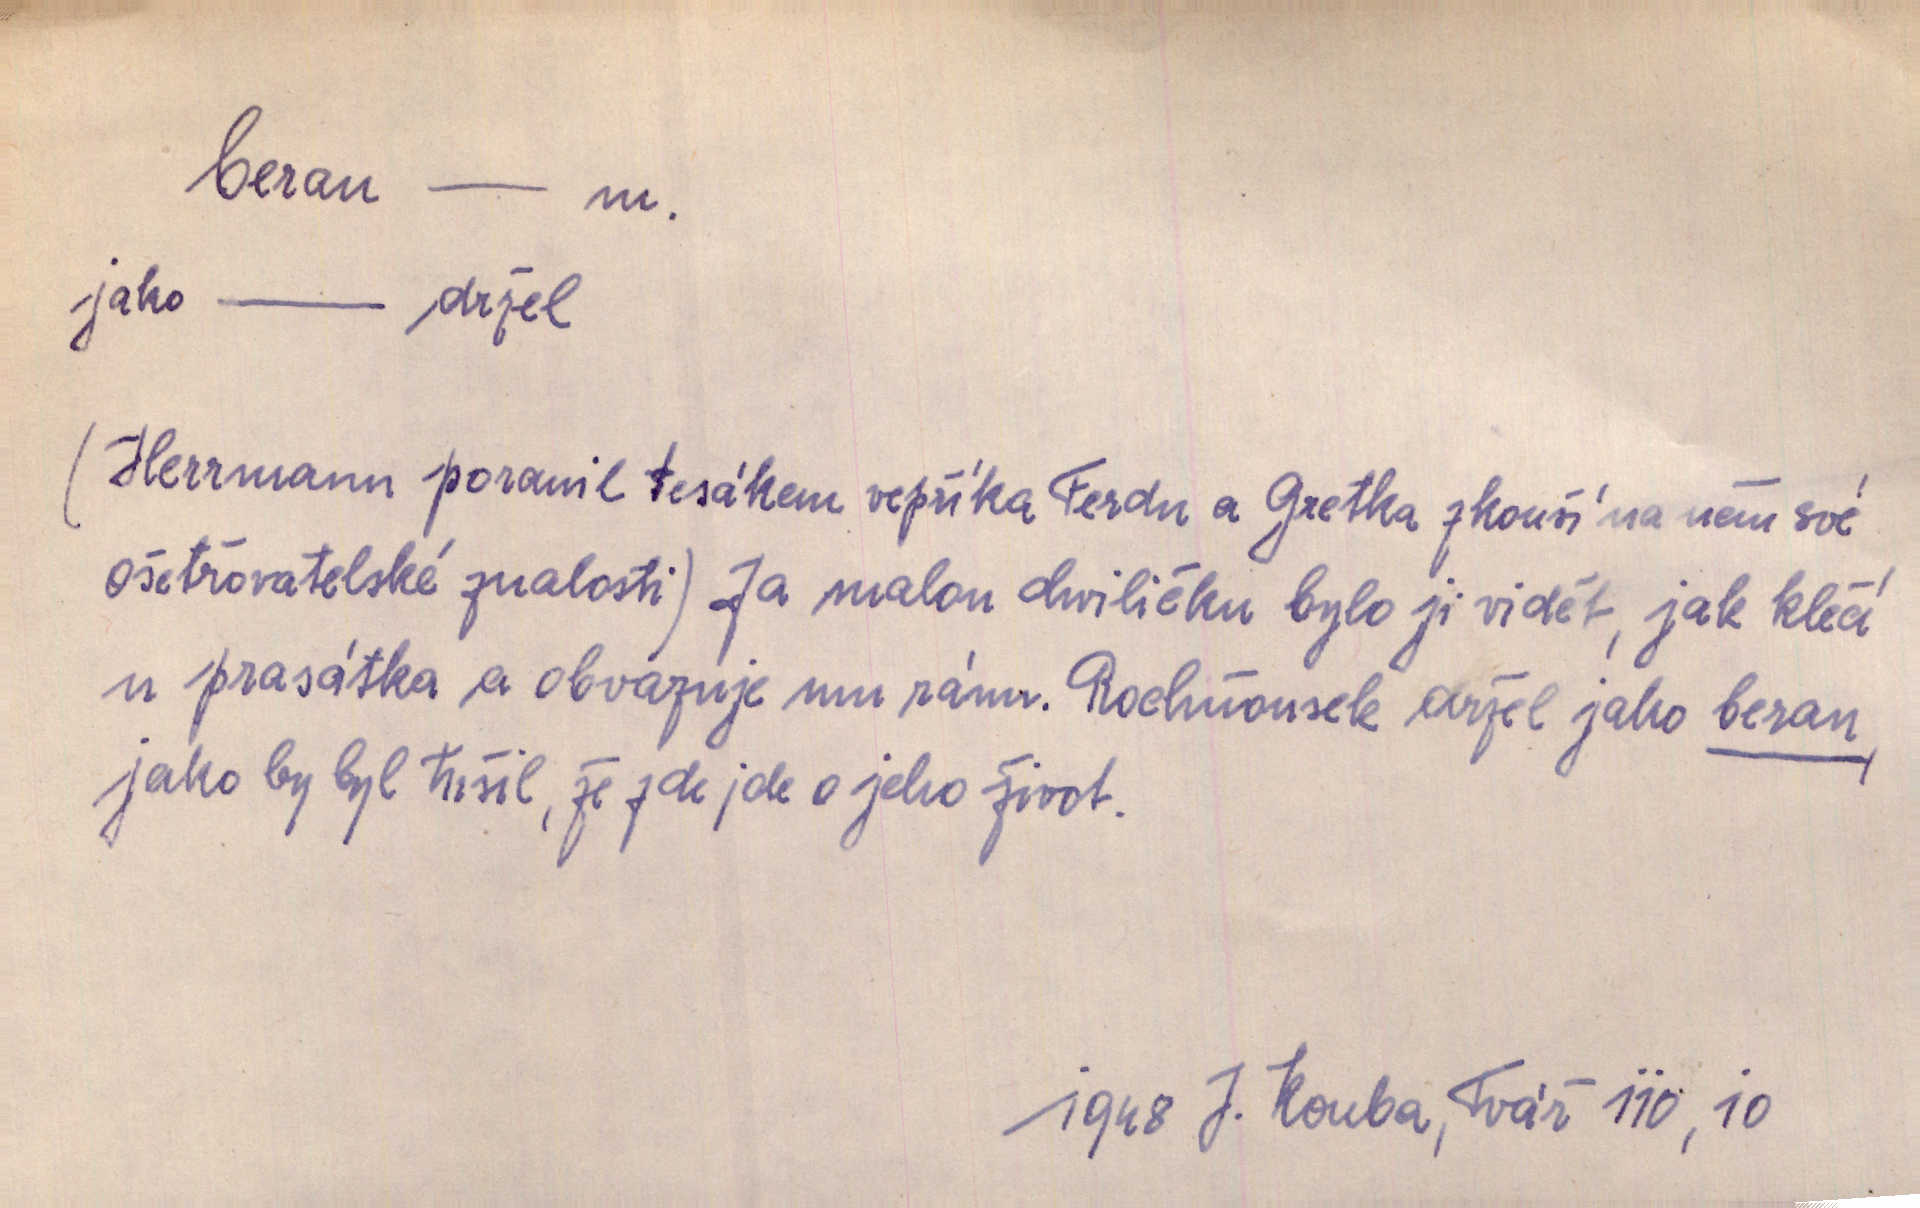 beran — m.
jako —— držel
(Herrmann poranil tesákem vepříka Ferdu a Gretka zkouší na něm své
ošetřovatelské znalosti) Za malou chviličku bylo ji vidět, jak klečí
u prasátka a obvazuje mu ránu. Rochňousek držel jako beran,
jako by byl tušil, že zde jde o jeho život.
1948 J. Kouba, Tvář 110, 10